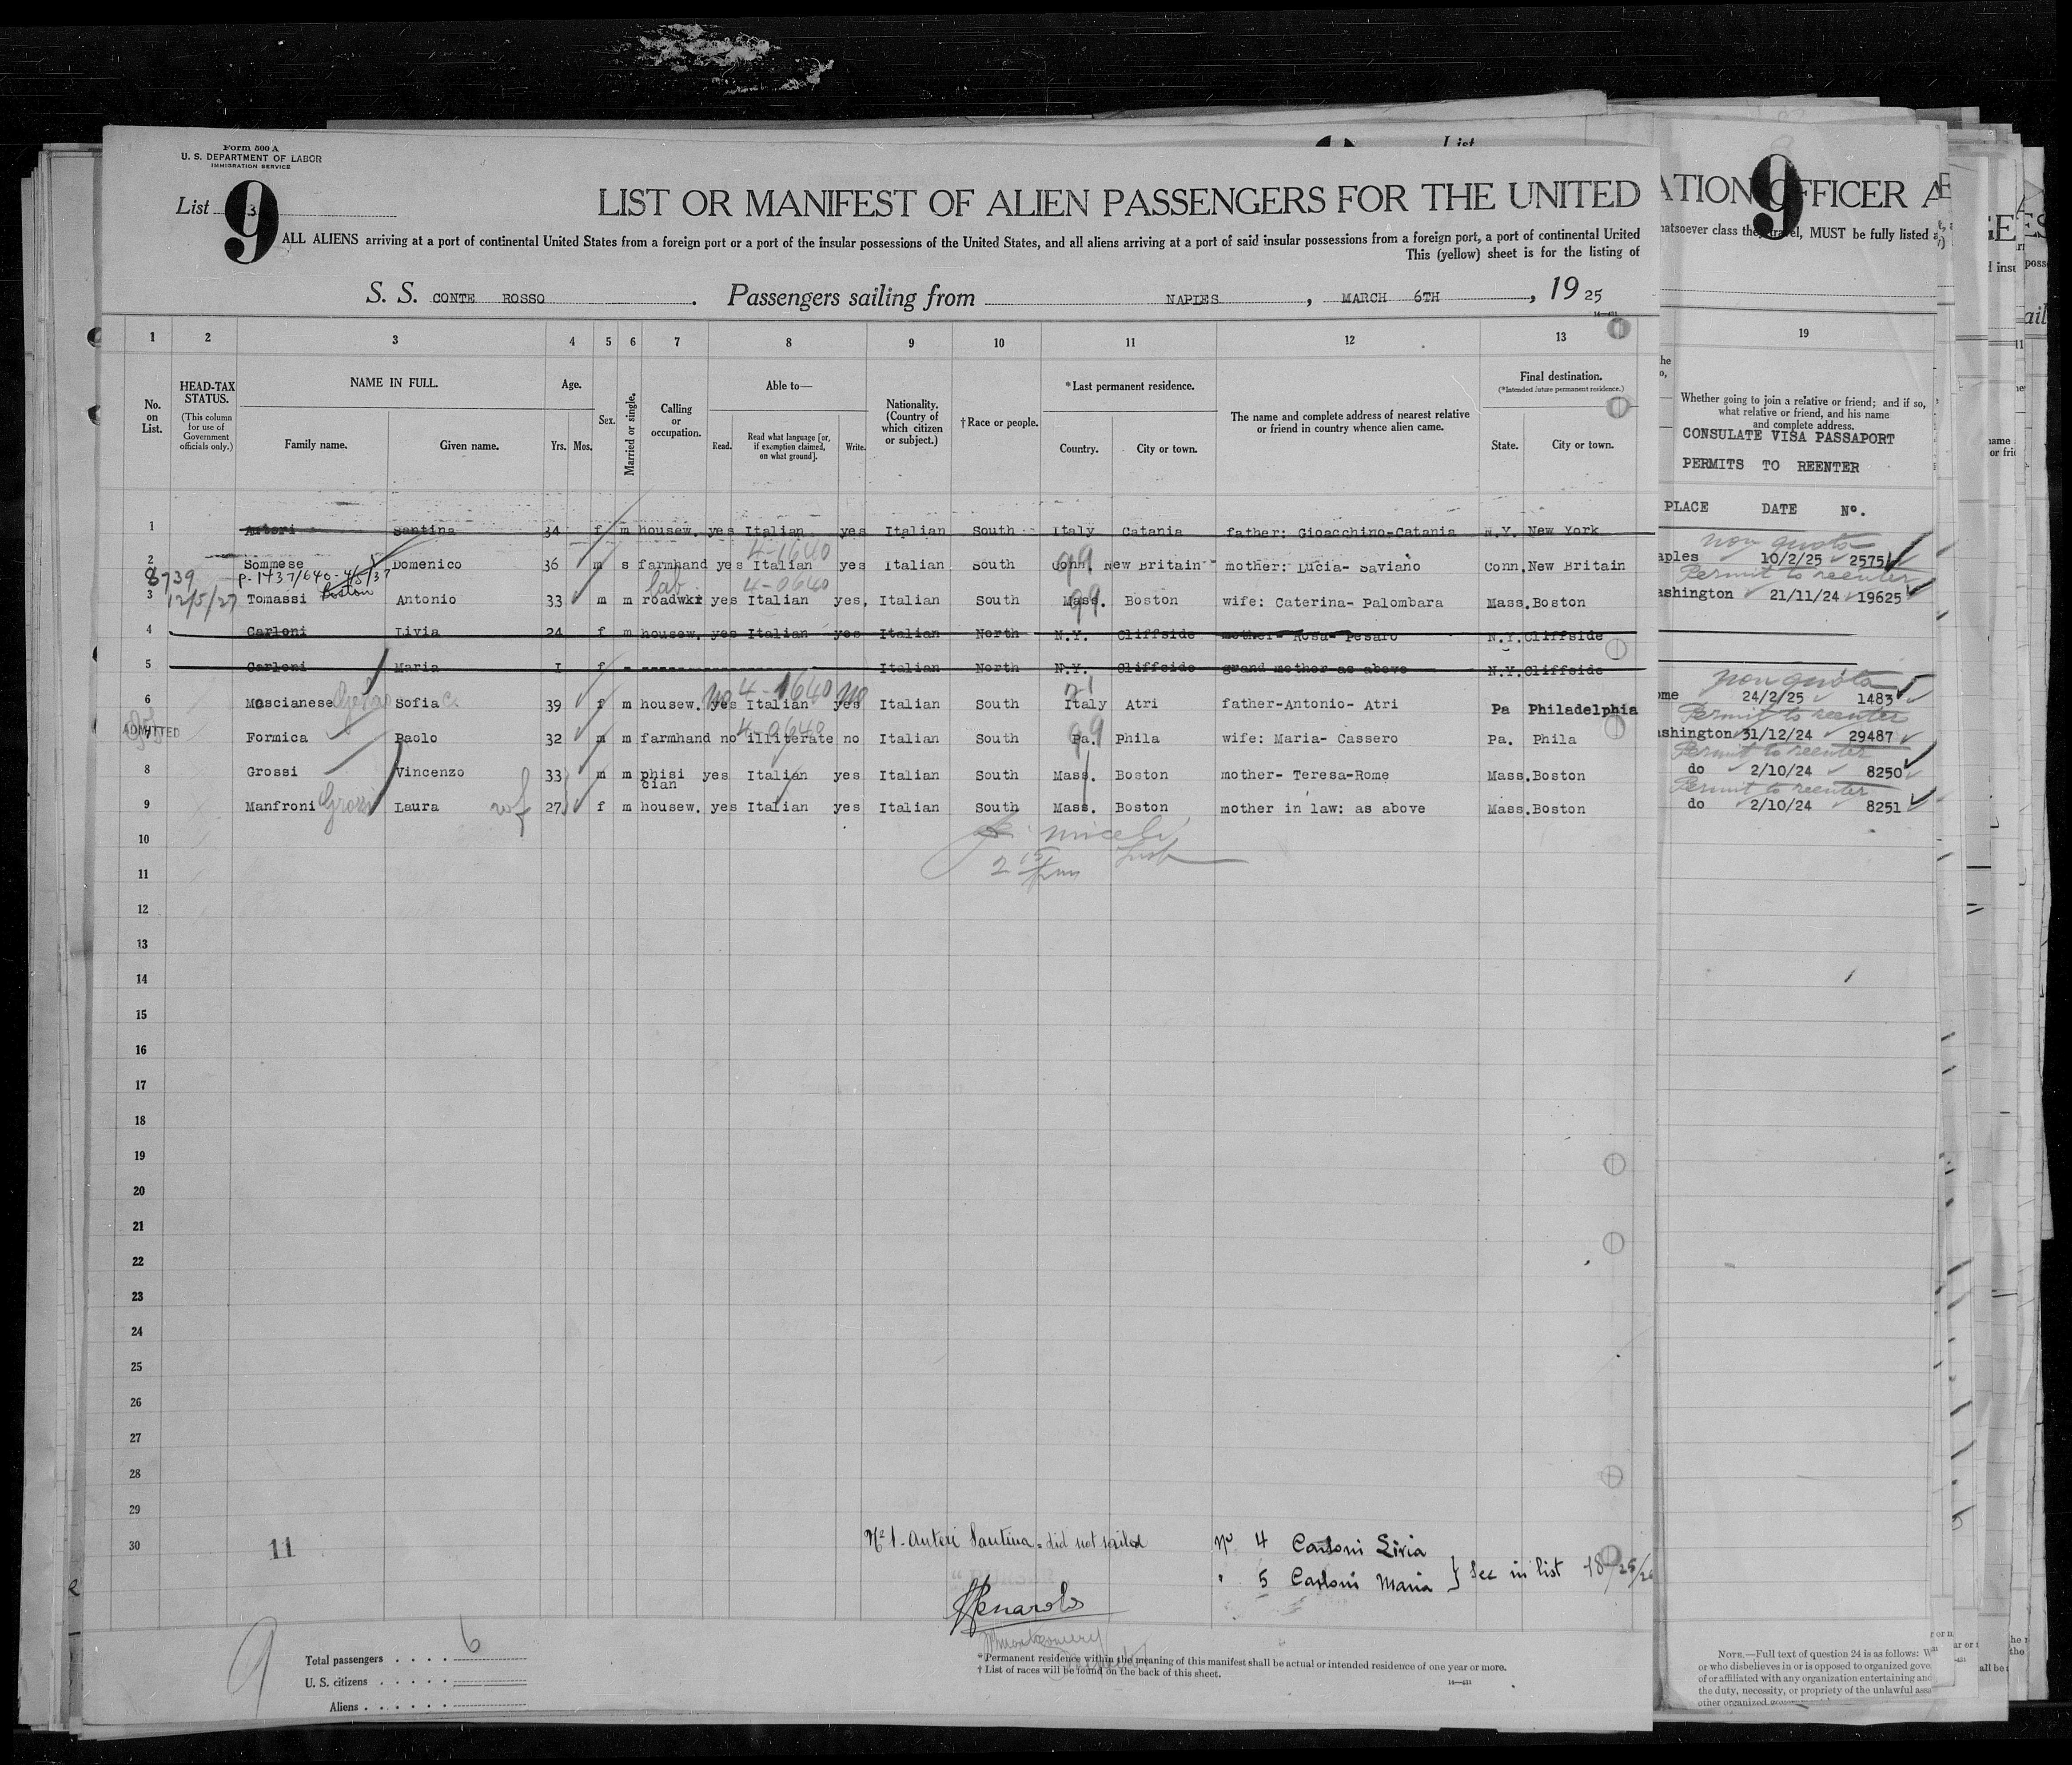 Form 500 A
U. S. DEPARTMENT OF LABOR
IMMIGRATION SERVICE
List 3
9
LIST OR MANIFEST OF ALIEN PASSENGERS FOR THE UNITED
ALL ALIENS arriving at a port of continental United States from a foreign port or a port of the insular possessions of the United States, and all aliens arriving at a port of said insular possessions from a foreign port, a port of continental United
This (yellow) sheet is for the listing of
S. S. CONTE ROSSO . Passengers sailing from NAPLES , MARCH 6TH , 19 25
1 2 3 4 5 6 7 8 9 10 11 12 13
No. on List.
HEAD-TAX STATUS.
(This column for use of Government officials only.)
NAME IN FULL.
Family name. Given name.
Age.
Yrs. Mos.
Sex.
Married or single.
Calling or occupation.
Able to—
Read. Read what language [or, if exemption claimed, on what ground]. Write.
Nationality. (Country of which citizen or subject.)
† Race or people.
*Last permanent residence.
Country. City or town.
The name and complete address of nearest relative or friend in country whence alien came.
Final destination.
(*Intended future permanent residence.)
State. City or town.
1 Auteri Santina 34 f m housew. yes Italian yes Italian South Italy Catania father: Gioacchino-Catania N.Y. New York
4-1640
2 Sommese Domenico 36 m s farmhand yes Italian yes Italian South Conn. New Britain mother: Lucia- Saviano Conn. New Britain
99
8739 P-1437/640-4/5/37
Boston
12/5/27
lab 4-0640
3 Tomassi Antonio 33 m m roadwkr yes Italian yes, Italian South Mass. Boston wife: Caterina- Palombara Mass. Boston
99
4 Carloni Livia 24 f m housew. yes Italian yes Italian North N.Y. Cliffside mother- Rosa- Pesaro N.Y. Cliffside
5 Carloni Maria I f - Italian North N.Y. Cliffside grand mother as above N.Y. Cliffside
no 4-1640 no
6 Moscianese Sofia C. 39 f m housew. yes Italian yes Italian South Italy Atri father-Antonio- Atri Pa Philadelphia
ADMITTED
4-0640
7 Formica Paolo 32 m m farmhand no illiterate no Italian South Pa. Phila wife: Maria- Cassero Pa. Phila
99
8 Grossi Vincenzo 33 m m phisi cian yes Italian yes Italian South Mass. Boston mother- Teresa-Rome Mass. Boston
9 Manfroni Grossi Laura wf 27 f m housew. yes Italian yes Italian South Mass. Boston mother in law: as above Mass. Boston
10
11
12
13
14
15
16
17
18
19
20
21
22
23
24
25
26
27
28
29
30
11
Nº 1 - Auteri Santina = did not sailed
Nº 4 Carloni Livia
" 5 Carloni Maria } See in list 18
9
Total passengers . . . . 6
U. S. citizens . . . . .
Aliens . . . . . .
*Permanent residence within the meaning of this manifest shall be actual or intended residence of one year or more.
† List of races will be found on the back of this sheet.
List
ATION OFFICER A
9
hatsoever class they travel, MUST be fully listed
19
Whether going to join a relative or friend; and if so, what relative or friend, and his name and complete address.
CONSULATE VISA PASSAPORT
PERMITS TO REENTER
PLACE DATE Nº.
non quota
aples 10/2/25 2575
Permit to reenter
ashington 21/11/24 19625
non quota
ome 24/2/25 1483
Permit to reenter
ashington 31/12/24 29487
Permit to reenter
do 2/10/24 8250
Permit to reenter
do 2/10/24 8251
NOTE.—Full text of question 24 is as follows: W
or who disbelieves in or is opposed to organized gove
of or affiliated with any organization entertaining and
the duty, necessity, or propriety of the unlawful assa
other organized